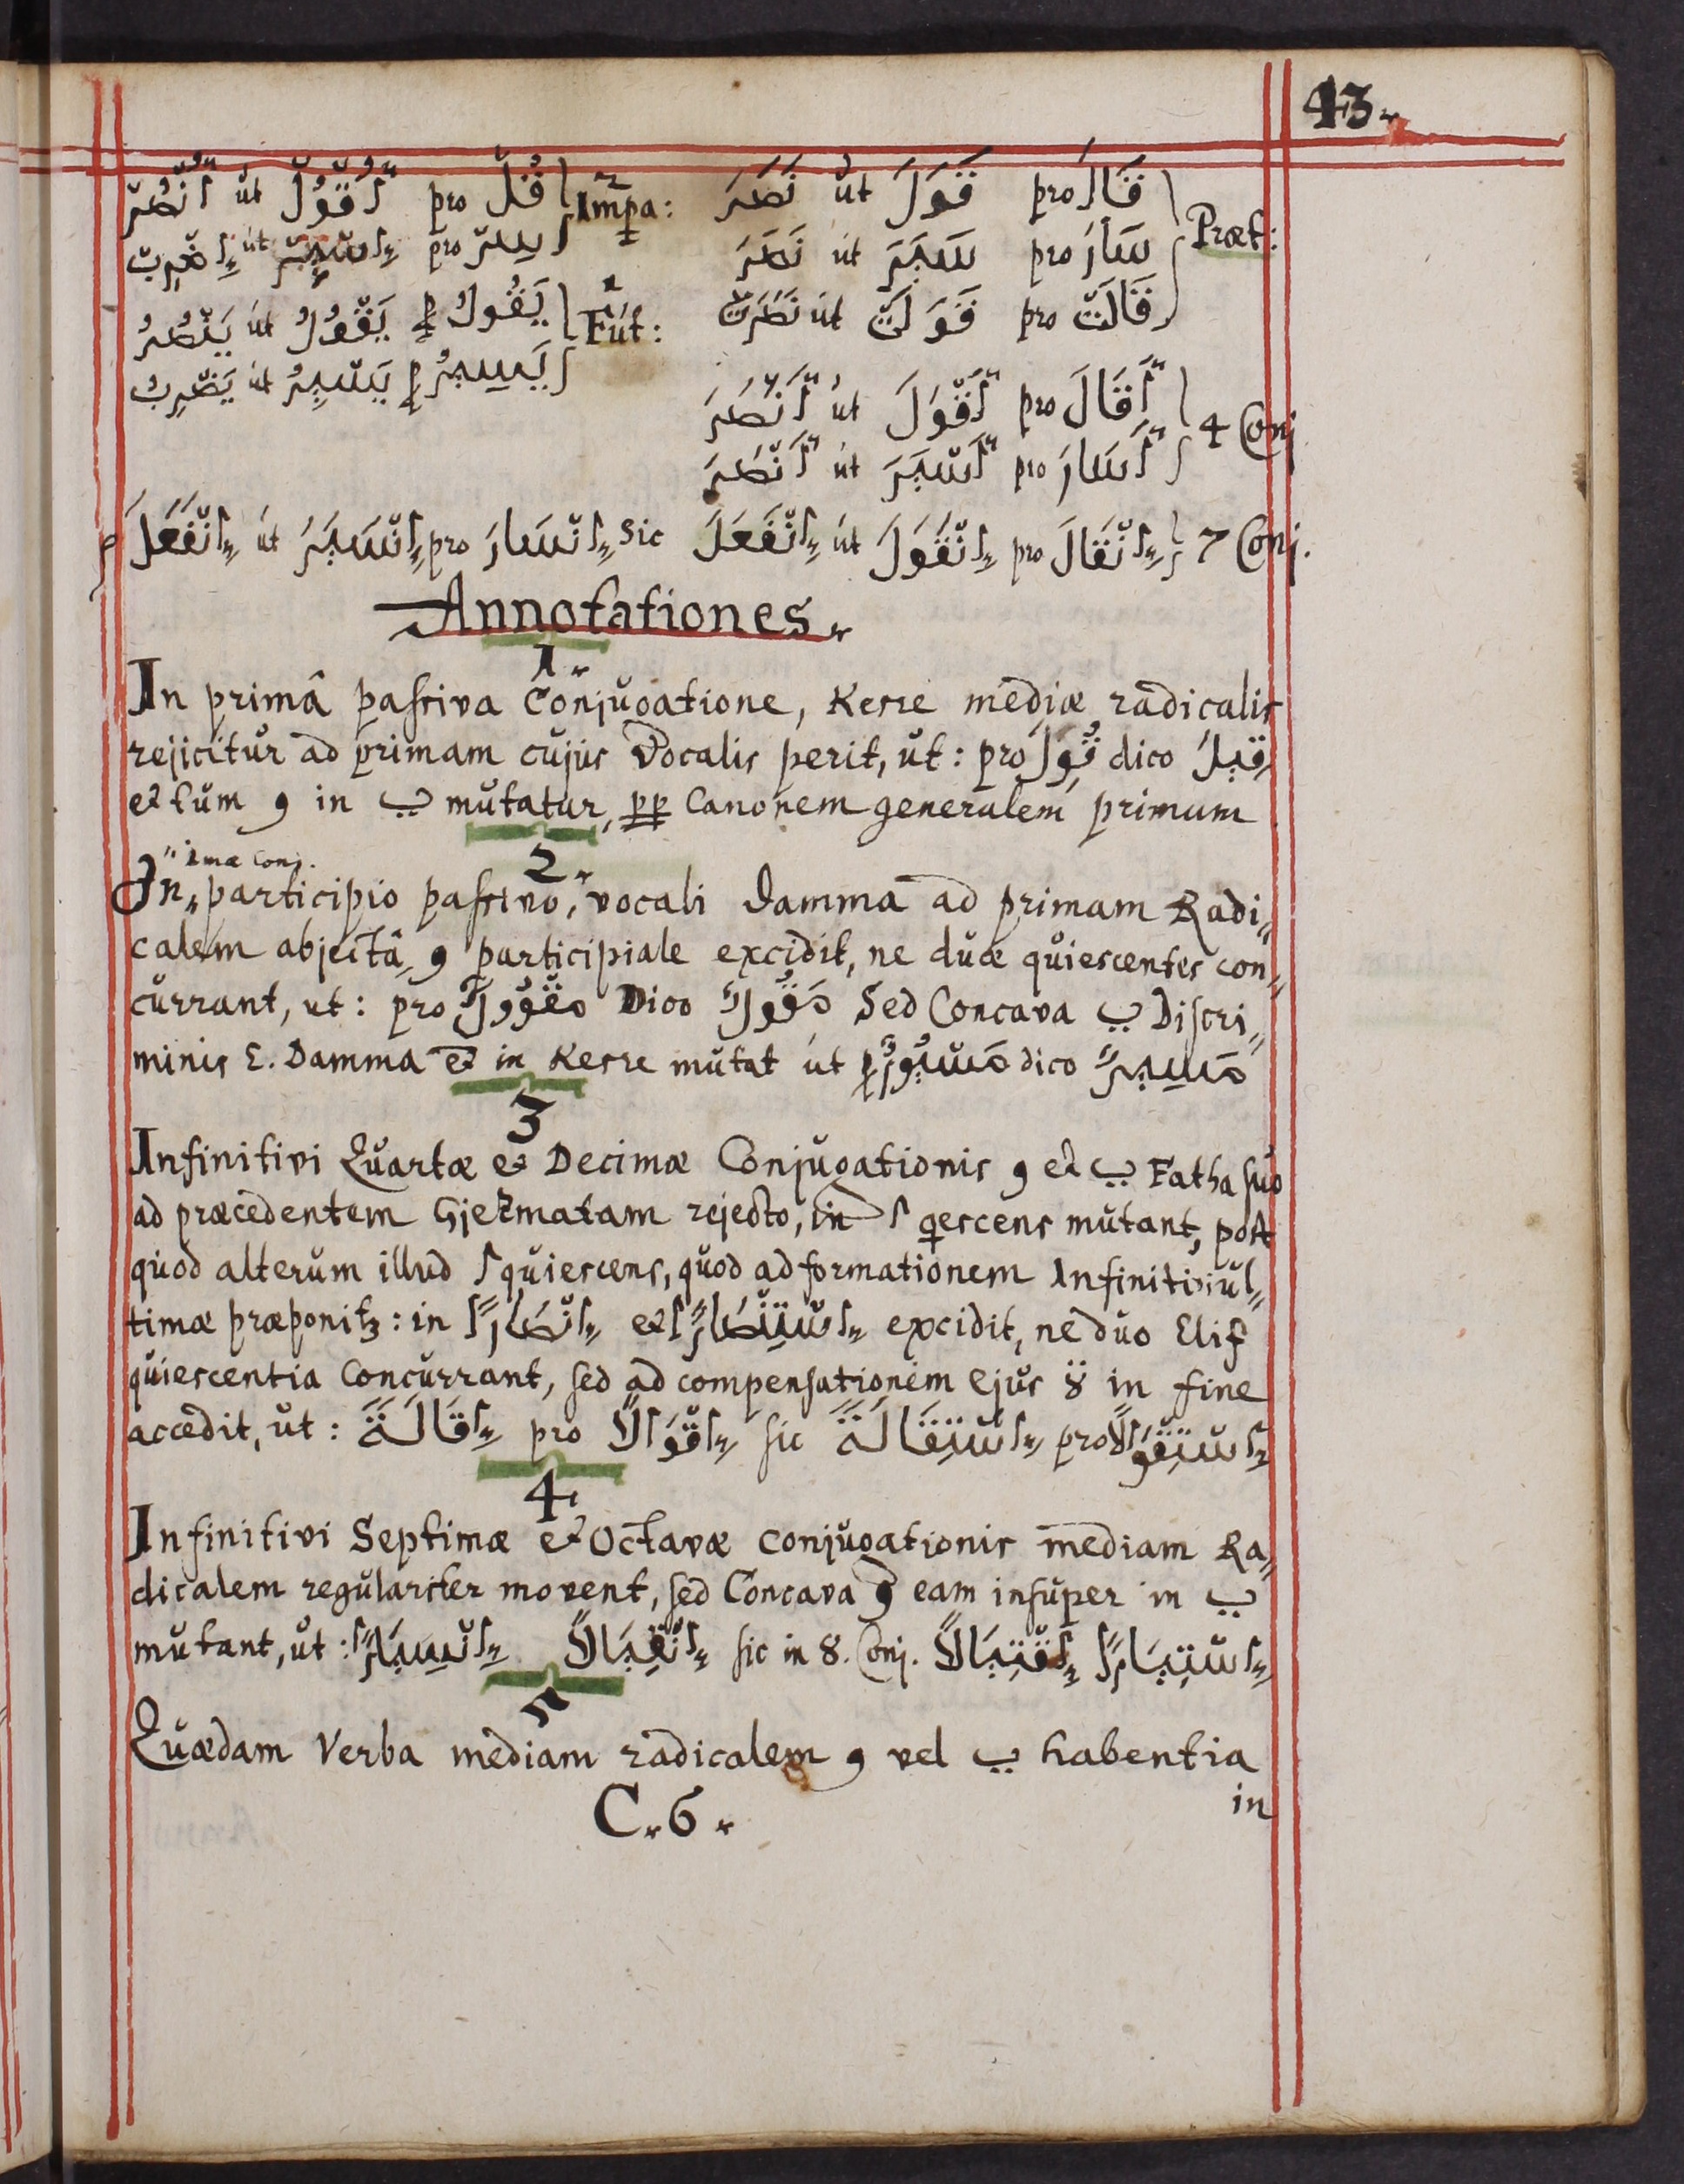 43.
Præt: قَالَ pro قَوَلَ ut نَصَرَ Impa: قُلْ pro أُقْوُلْ ut أُنْصُرْ
سَارَ pro سَيَرَ ut نَصَرَ سِرْ pro إِسْيِرْ ut إِضْرِبْ
قَالَتْ pro قَوَلَتْ ut نَصَرَتْ Fut: يَقُولُ p يَقْوُلُ ut يَنْصُرُ
يَسِيرُ p يَسْيِرُ ut يَضْرِبُ
4 Conj أَقَالَ pro أَقْوَلَ ut أَنْصَرَ
أَسَارَ pro أَسْيَرَ ut أَنْصَرَ
7 Conj. إِنْقَالَ pro إِنْقَوَلَ ut إِنْفَعَلَ sic إِنْسَارَ pro إِنْسَيَرَ ut إِنْفَعَلَ
Annotationes.
1.
In primâ passiva Conjugatione, Kesre mediæ radicalis
rejicitur ad primam cujus Vocalis perit, ut: pro قُوِلَ dico قِيلَ
et tum و in ي mutatur, pp Canonem generalem primum
2.
In 1mæ Conj. participio passivo, vocali Damma ad primam Radi„
calem abjectâ, و participiale excidit, ne duæ quiescentes con„
currant, ut: pro مَقْوُولٌ Dico مَقُولٌ Sed Concava ي Discri„
minis E. Damma et in Kesre mutat ut p مَسْيُورٌ dico مَسِيرٌ
3
Infinitivi Quartæ et Decimæ Conjugationis و et ي Fatha suo
ad præcedentem Gjezmatam rejecto, in ا qescens mutant, post
quod alterum illud ا quiescens, quod ad formationem Infinitivi ul„
timæ præponitz: in إِنْصَارًا et إِسْتِنْصَارًا excidit, ne duo Elif
quiescentia Concurrant, sed ad compensationem ejus ة in fine
accedit, ut: إِقَالَةً pro إِقْوَالًا sic إِسْتِقَالَةً pro إِسْتِقْوَالًا
4
Infinitivi Septimæ et Octavæ Conjugationis mediam Ra„
dicalem regulariter movent, sed Concava و eam insuper in ي
mutant, ut: إِنْسِيَارًا إِنْقِيَالًا sic in 8. Conj. إِقْتِيَالًا إِسْتِيَارًا
5
Quædam Verba mediam radicalem و vel ي habentia
C.6. in